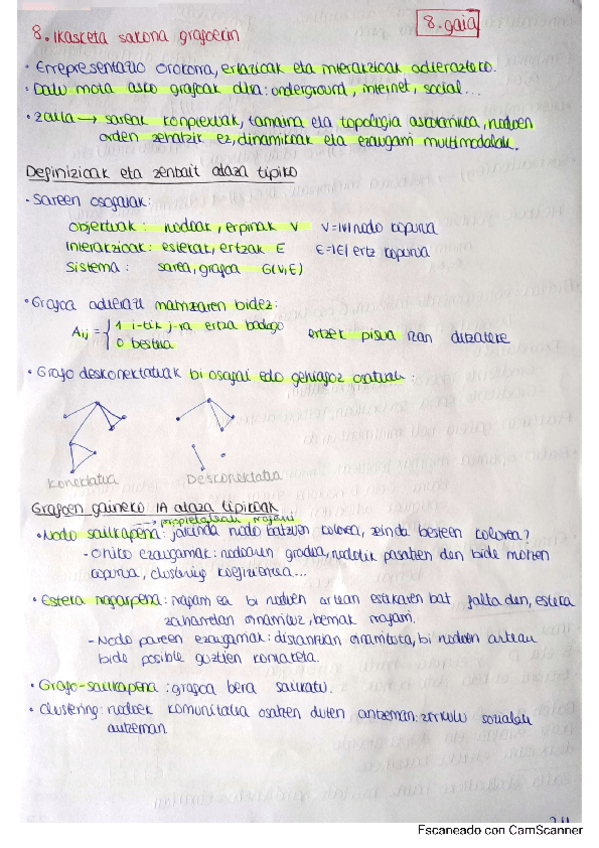 8. Ikasketa sakona grafoetan
8. gaia
• Errepresentazio orokorra, erlazioak eta interakzioak adierazteko.
• Datu mota asko grafoak dira: underground, internet, social...
• Zaila → sareak konplexuak, tamaina eta topologia askotarikoa, nodoen
orden zehatzik ez, dinamikoak eta ezaugarri multimodalak.
Definizioak eta zenbait ataza tipiko
• Sareen osagaiak:
Objektuak: nodoak, erpinak V V=|V| nodo kopurua
Interakzioak: esterak, ertzak E E=|E| ertz kopurua
Sistema: sarea, grafoa G(V,E)
• Grafoa adierazi matrizearen bidez:
Aij = { 1 i-tik j-ra ertza badago
0 bestela
ertzek pisua izan dezakete
• Grafo deskonektatuak bi osagai edo gehiagoz osatuak:
Konektatua Deskonektatua
Grafoen gaineko IA ataza tipikoak
→ propietateak, iragarri
• Nodo sailkapena: jakinda nodo batzuen kolorea, zeinda besteen kolorea?
- Ohiko ezaugarriak: nodoaren gradua, nodotik pasatzen den bide motzen
kopurua, clustering koefizientea...
• Estera iragarpena: iragarri ea bi nodoen artean estekaren bat falta den, estera
zaharretan oinarrituz, berriak iragarri.
- Nodo pareen ezaugarriak: distantzian oinarrituta, bi nodoen arteau
bide posible guztien kontaketa.
• Grafo-sailkapena: grafoa bera sailkatu.
• Clustering: nodoek komunitatea osatzen duten antzeman: zirkulu sozialak
antzeman.
Escaneado con CamScanner